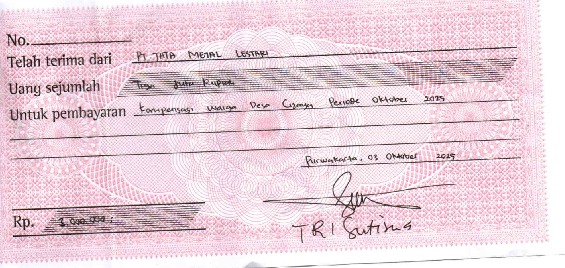 No.
Telah terima dari PT TATA METAL LESTARI
Uang sejumlah Tiga Juta Rupiah
Untuk pembayaran Kompensasi Warga Desa Periode Oktober 2025
Purwakarta, 03 Oktober 2025
Rp. 3.000.000,-
TRI Sutisna